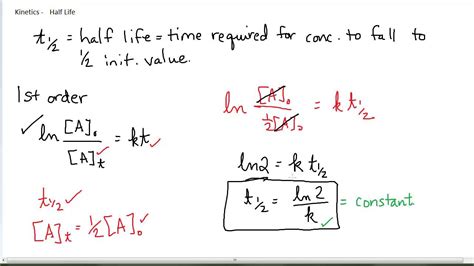 Kinetics - Half Life
t₁/₂ = half life = time required for conc. to fall to
½ init. value.
1st order
ln [A]₀/[A]t = kt
t₁/₂
[A]t = ½[A]₀
ln [A]₀/½[A]₀ = k t₁/₂
ln2 = k t₁/₂
t₁/₂ = ln 2/k = constant